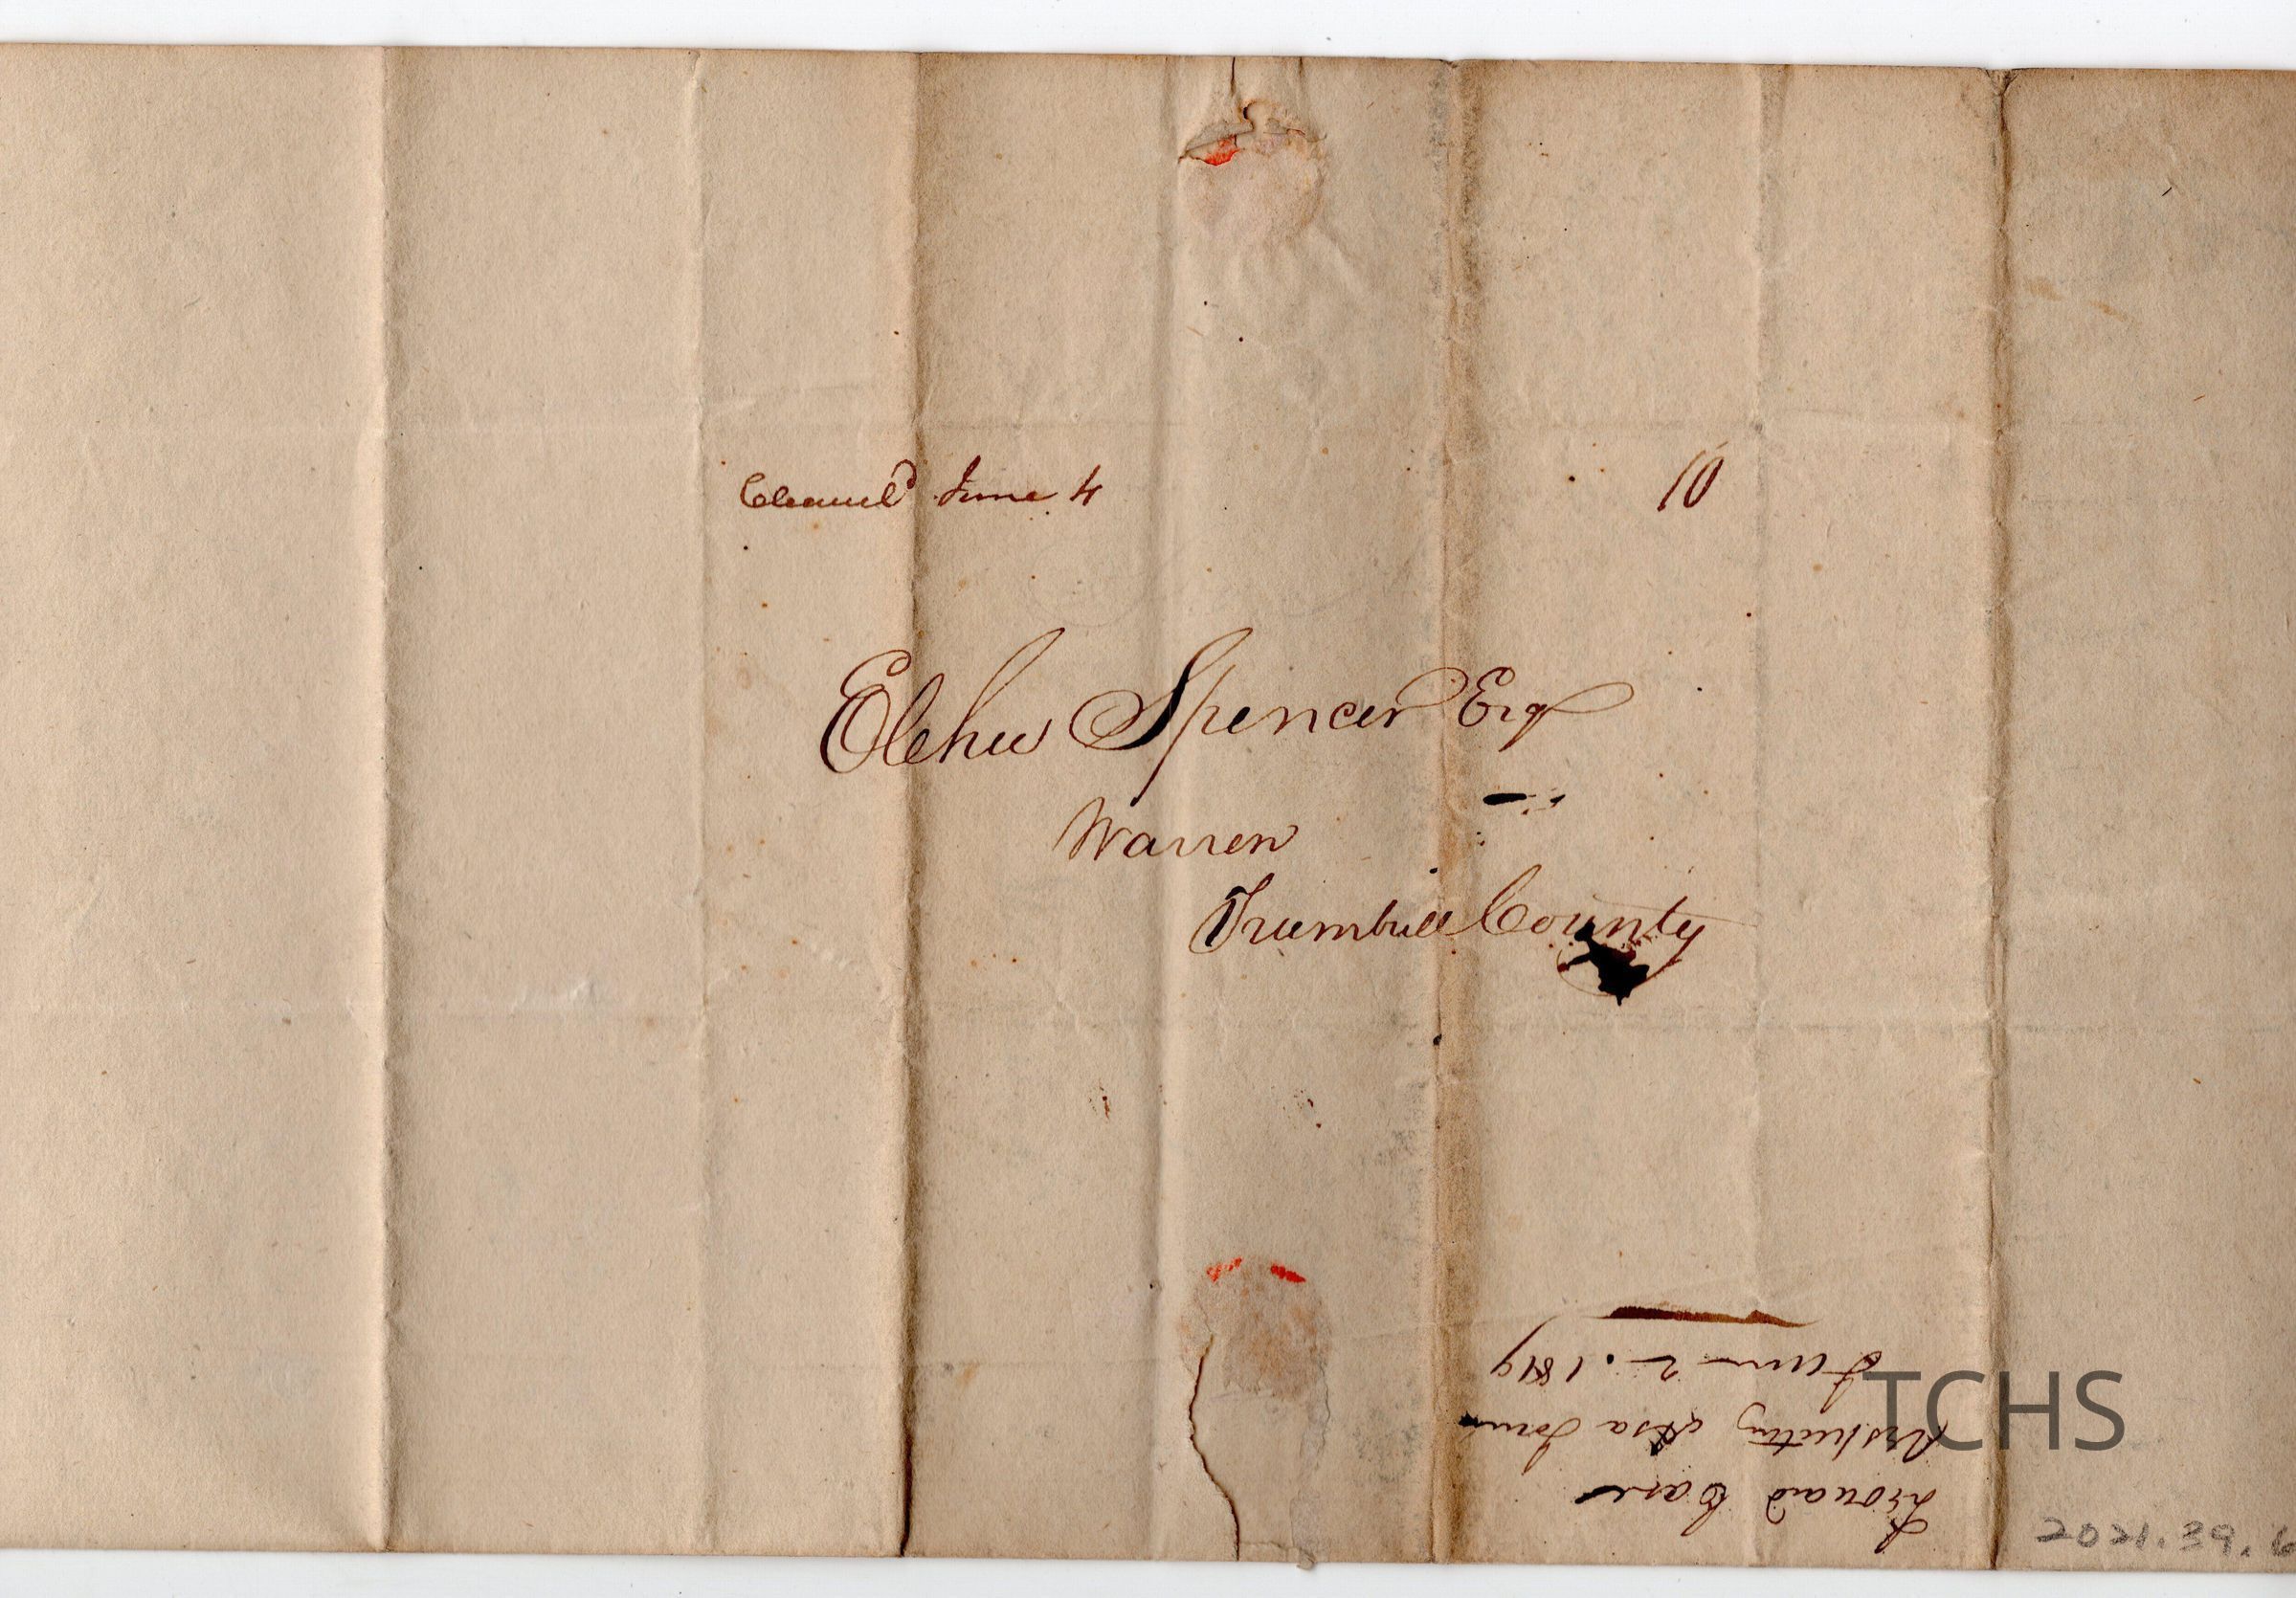 Cleavel^d June 4
10
Elehu Spencer Esq
Warren
Trumbull County
Leonard Case
Respecting Asa
June 2. 1819
TCHS
2021.39.6